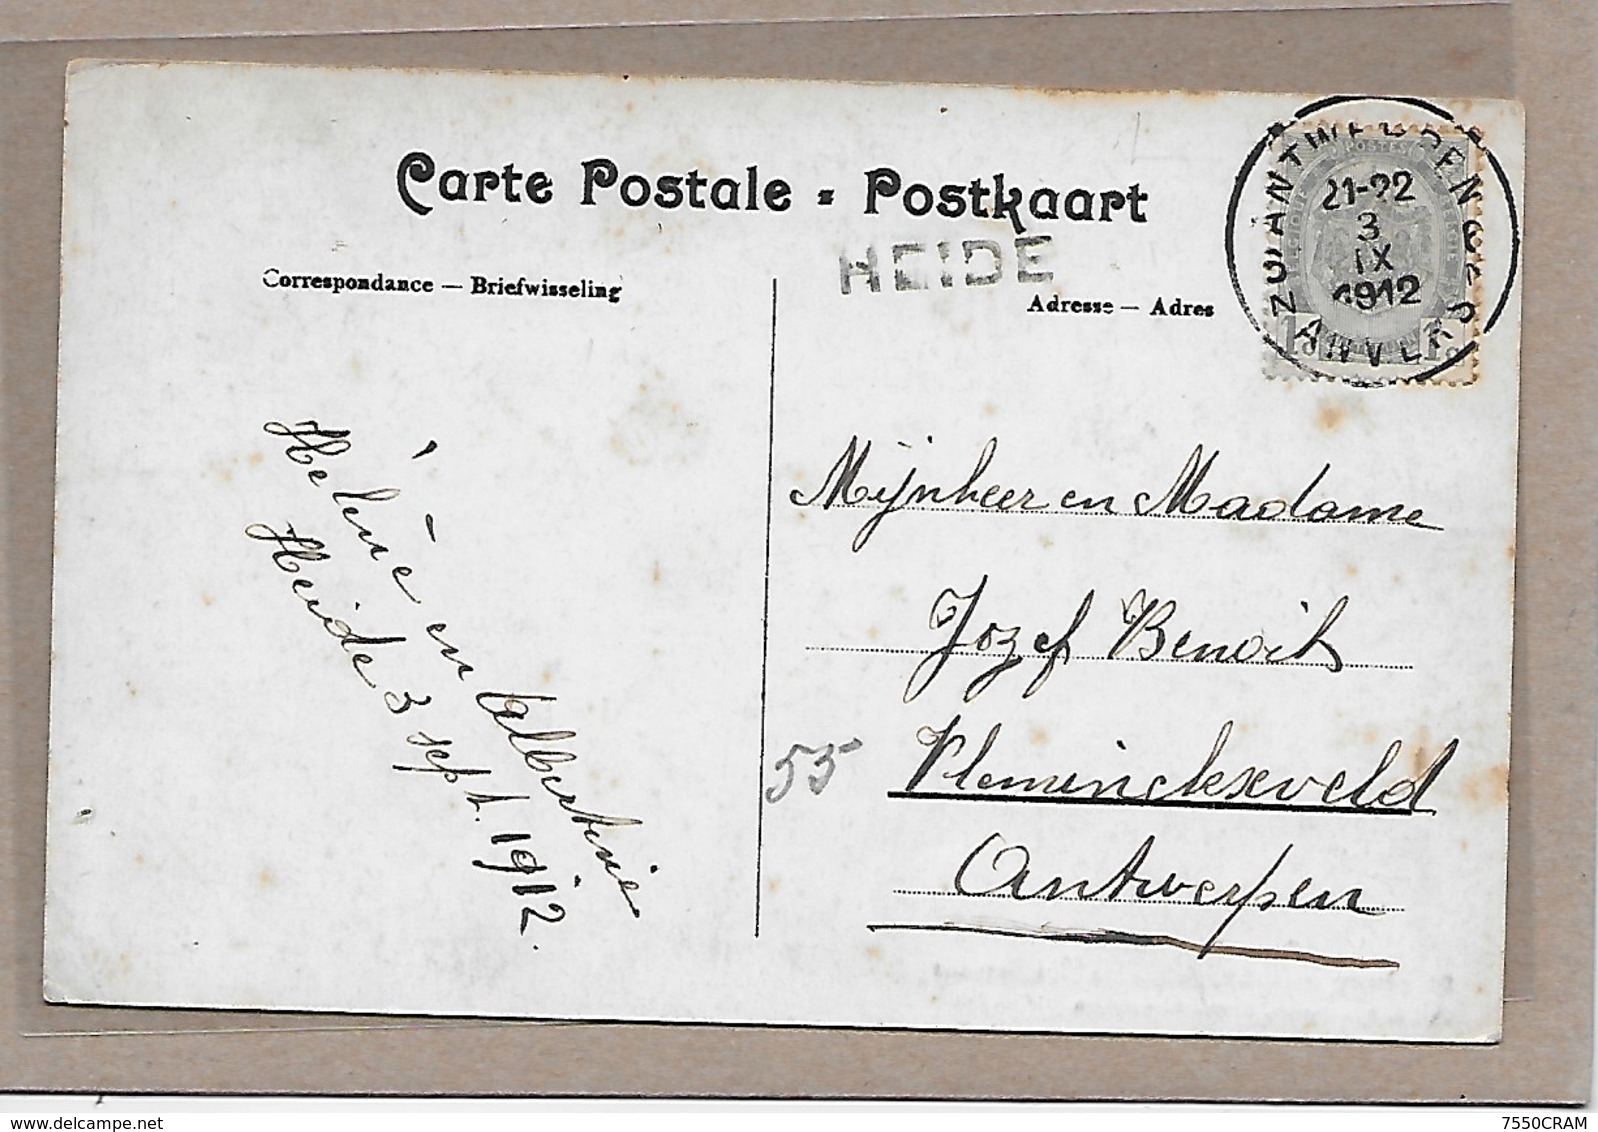 Carte Postale - Postkaart
HEIDE
Correspondance — Briefwisseling
Adresse — Adres
ANTWERPEN
POSTES
21-22
3
IX
1912
ANVERS
1 1
Hélène en Albertine
Heide 3 sept. 1912.
Mijnheer en Madame
Jozef Benoit
55 Vleminckxveld
Antwerpen
delcampe.net
7550CRAM